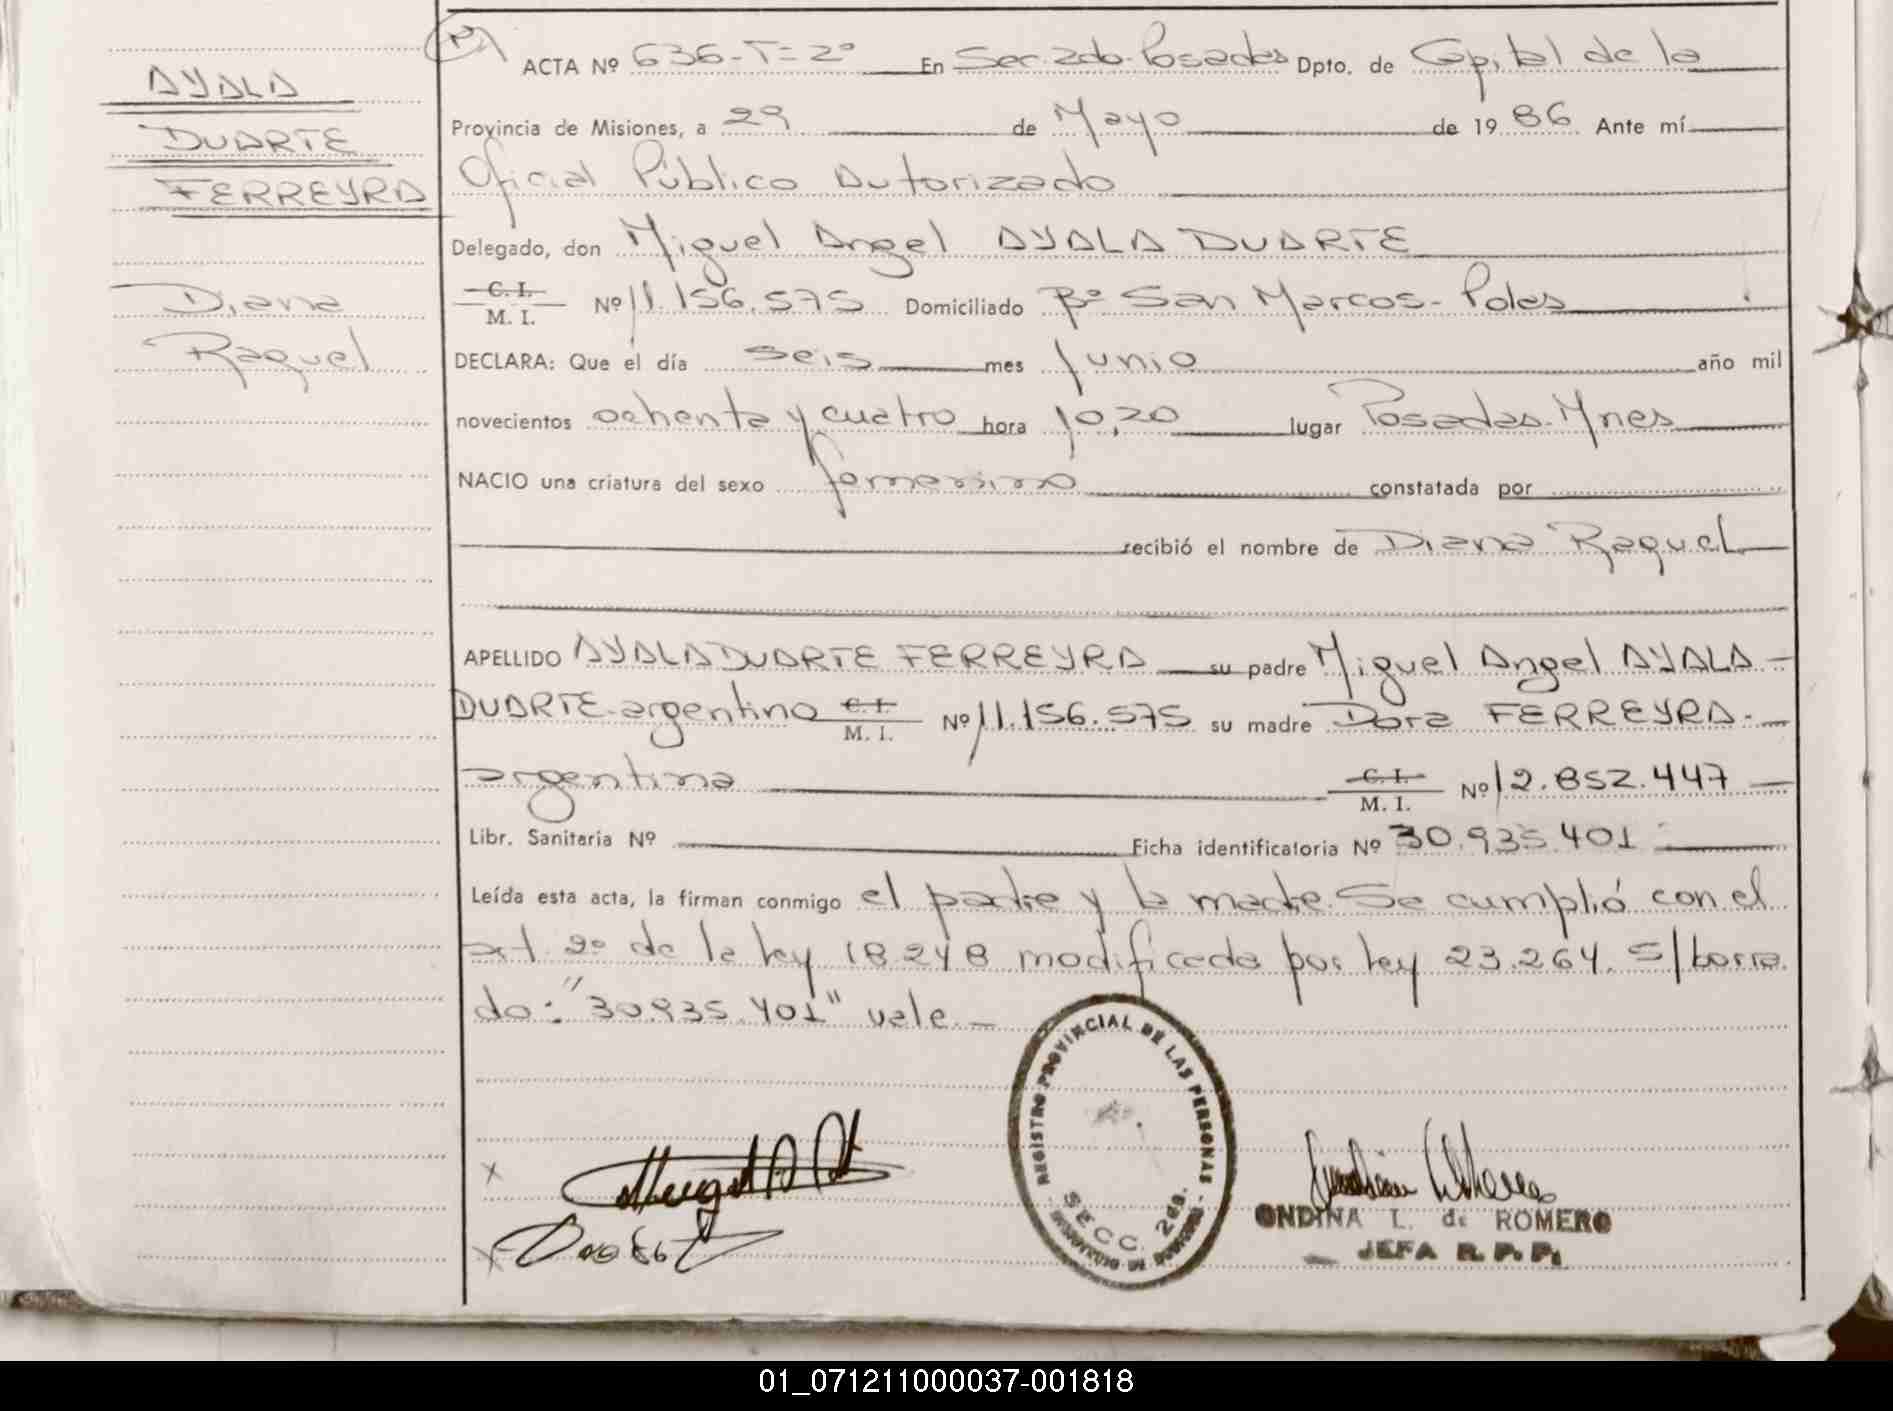 AYALA
DUARTE
FERREYRA
Diana
Raquel
ACTA Nº 636-T=2º En Sec. 2da. Posadas Dpto. de Capital de la
Provincia de Misiones, a 29 de Mayo de 1986 Ante mí
Oficial Público Autorizado
Delegado, don Miguel Angel AYALA DUARTE
C. I.
M. I. Nº 11.156.575 Domiciliado Bº San Marcos- Pdas
DECLARA: Que el día seis mes Junio año mil
novecientos ochenta y cuatro hora 10,20 lugar Posadas-Mnes
NACIO una criatura del sexo femenino constatada por
recibió el nombre de Diana Raquel
APELLIDO AYALA DUARTE FERREYRA su padre Miguel Angel AYALA
DUARTE-argentino C. I. M. I. Nº 11.156.575 su madre Dora FERREYRA.-
argentina C. I. M. I. Nº 12.852.447
Libr. Sanitaria Nº Ficha identificatoria Nº 30.935.401
Leída esta acta, la firman conmigo el padre y la madre. Se cumplió con el
art. 2º de la ley 18.248 modificada por ley 23.264. S/borra
do: "30.935.401" vale.-
REGISTRO PROVINCIAL DE LAS PERSONAS
SECC. 2da.
ONDINA L. de ROMERO
JEFA R. P. P.
01_071211000037-001818